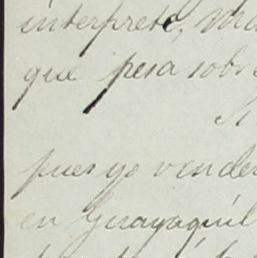 interprete,
que pesa sobre
Si
pues yo vender
en Guayaquil